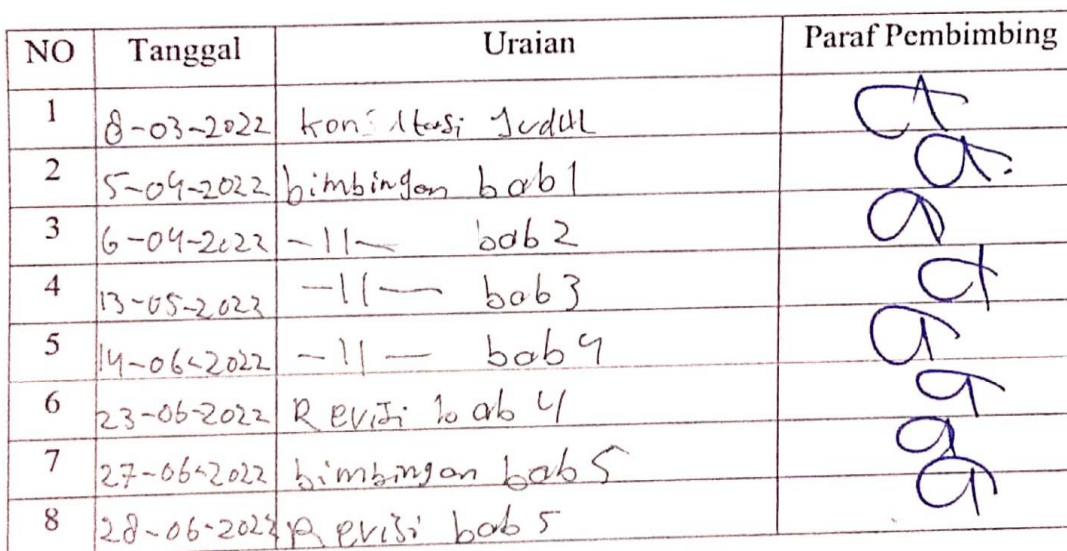 NO Tanggal Uraian Paraf Pembimbing
1 8-03-2022 konsultasi Judul
2 5-04-2022 bimbingan bab 1
3 6-04-2022 -11- bab 2
4 13-05-2022 -11- bab 3
5 14-06-2022 -11- bab 4
6 23-06-2022 Revisi bab 4
7 27-06-2022 bimbingan bab 5
8 28-06-2022 Revisi bab 5